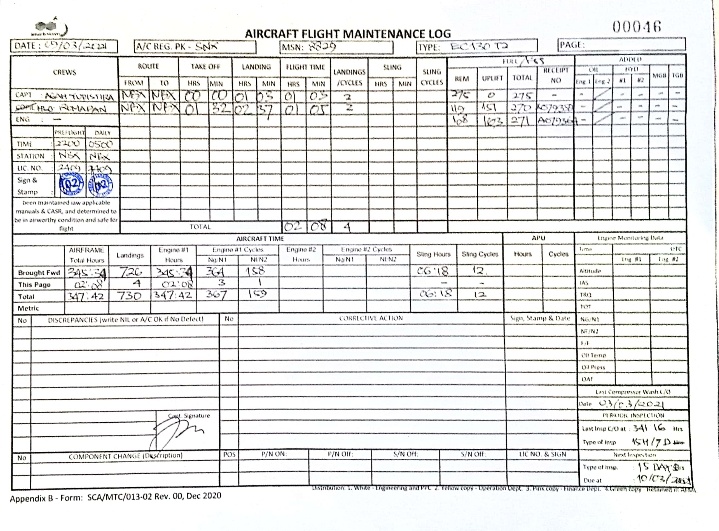 00046
AIRCRAFT FLIGHT MAINTENANCE LOG
DATE: 09/03/2021 A/C REG. PK - SNX MSN: 8829 TYPE: EC130 T2 PAGE:
CREWS ROUTE TAKE OFF LANDING FLIGHT TIME LANDINGS /CYCLES SLING SLING CYCLES FUEL/ ADDED
FROM TO HRS MIN HRS MIN HRS MIN HRS MIN REM UPLIFT TOTAL RECEIPT NO OIL HYD MGB TGB
Eng 1 Eng 2 #1 #2
CAPT 00 00 01 03 01 03 2 275 0 275 - -
01 32 02 37 01 05 2 119 151 270 -
ENG: - 168 103 271 -
PREFLIGHT DAILY
TIME 2200 0500
STATION
LIC NO.
Sign & Stamp
been maintained iaw applicable
manuals & CASR, and determined to
be in airworthy condition and safe for
flight
TOTAL 02 08 4
AIRCRAFT TIME APU Engine Monitoring Data
AIRFRAME Total Hours Landings Engine #1 Hours Engine #1 Cycles Engine #2 Hours Engine #2 Cycles Sling Hours Sling Cycles Hours Cycles Time OTC
Ng/N1 Nf/N2 Ng/N1 Nf/N2 Eng #1 Eng #2
Brought Fwd 345:34 726 345:34 364 158 06:18 12 Altitude
This Page 02:08 4 02:08 3 1 - - IAS
Total 347:42 730 347:42 367 159 06:18 12 TRQ
Metric TOT
No DISCREPANCIES (write NIL or A/C OK if No Defect) No CORRECTIVE ACTION Sign, Stamp & Date Ng/N1
Nf/N2
F.F
Oil Temp
Oil Press
OAT
Last Compressor Wash C/O
Date 03/03/2021
PERIODIC INSPECTION
Capt. Signature
Last Insp C/O at: 341 16 Hrs
Type of Insp. 15H/7D
No COMPONENT CHANGE (Description) POS P/N ON: P/N OFF: S/N OFF: S/N OFF: LIC NO. & SIGN Next Inspection
Type of Insp. 15
Due at
Distribution: 1. White - Engineering and PPC 2. Yellow copy - Operation Dept. 3. Pink copy - Finance Dept. 4. Green copy - Retained in AFML
Appendix B - Form: SCA/MTC/013-02 Rev. 00, Dec 2020